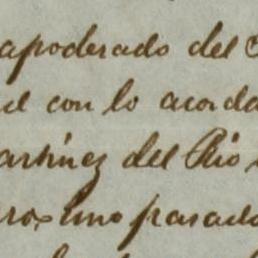 apoderado del
con lo acorda
artinez del Rio
roximo pasado